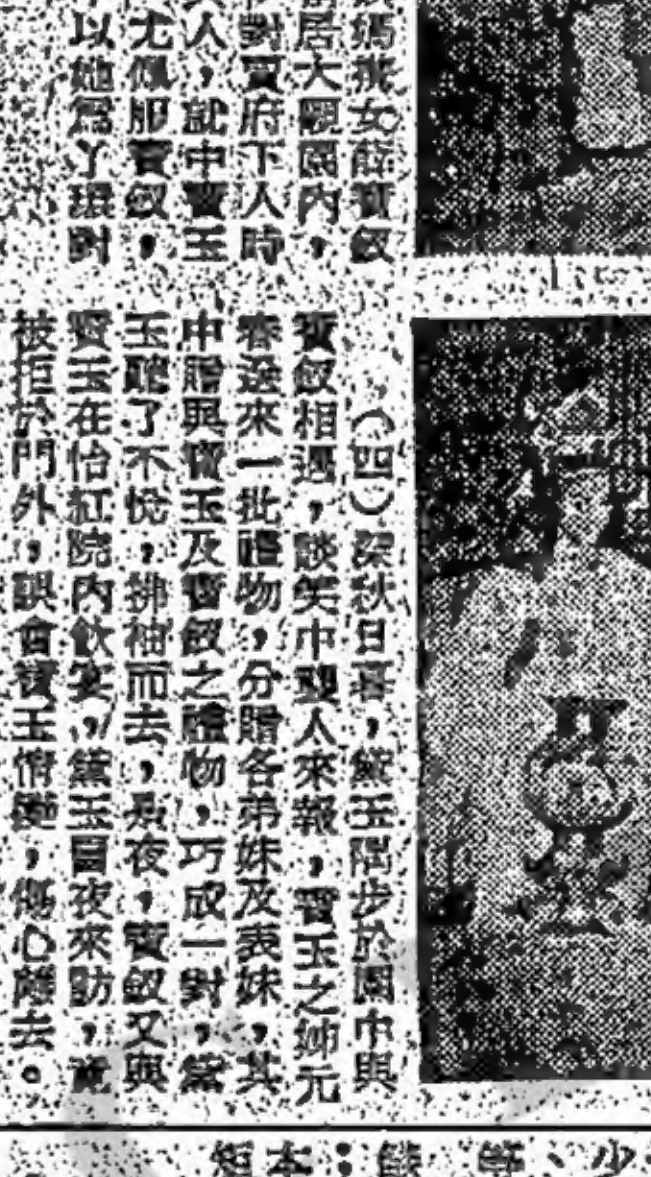 媽攜女薛寶釵
居大觀園內，
對賈府下人時
人，就中寶玉
尤佩服寶釵，
以她為丫環對
（四）深秋日暮，黛玉閒步於園中與
寶釵相遇，談笑中襲人來報，寶玉之姊元
春送來一批禮物，分贈各弟妹及表妹，其
中贈與寶玉及寶釵之禮物，巧成一對，黛
玉聽了不悅，拂袖而去，是夜，寶釵又與
寶玉在怡紅院內飲宴，黛玉冒夜來訪，竟
被拒於門外，誤會寶玉情變，傷心離去。